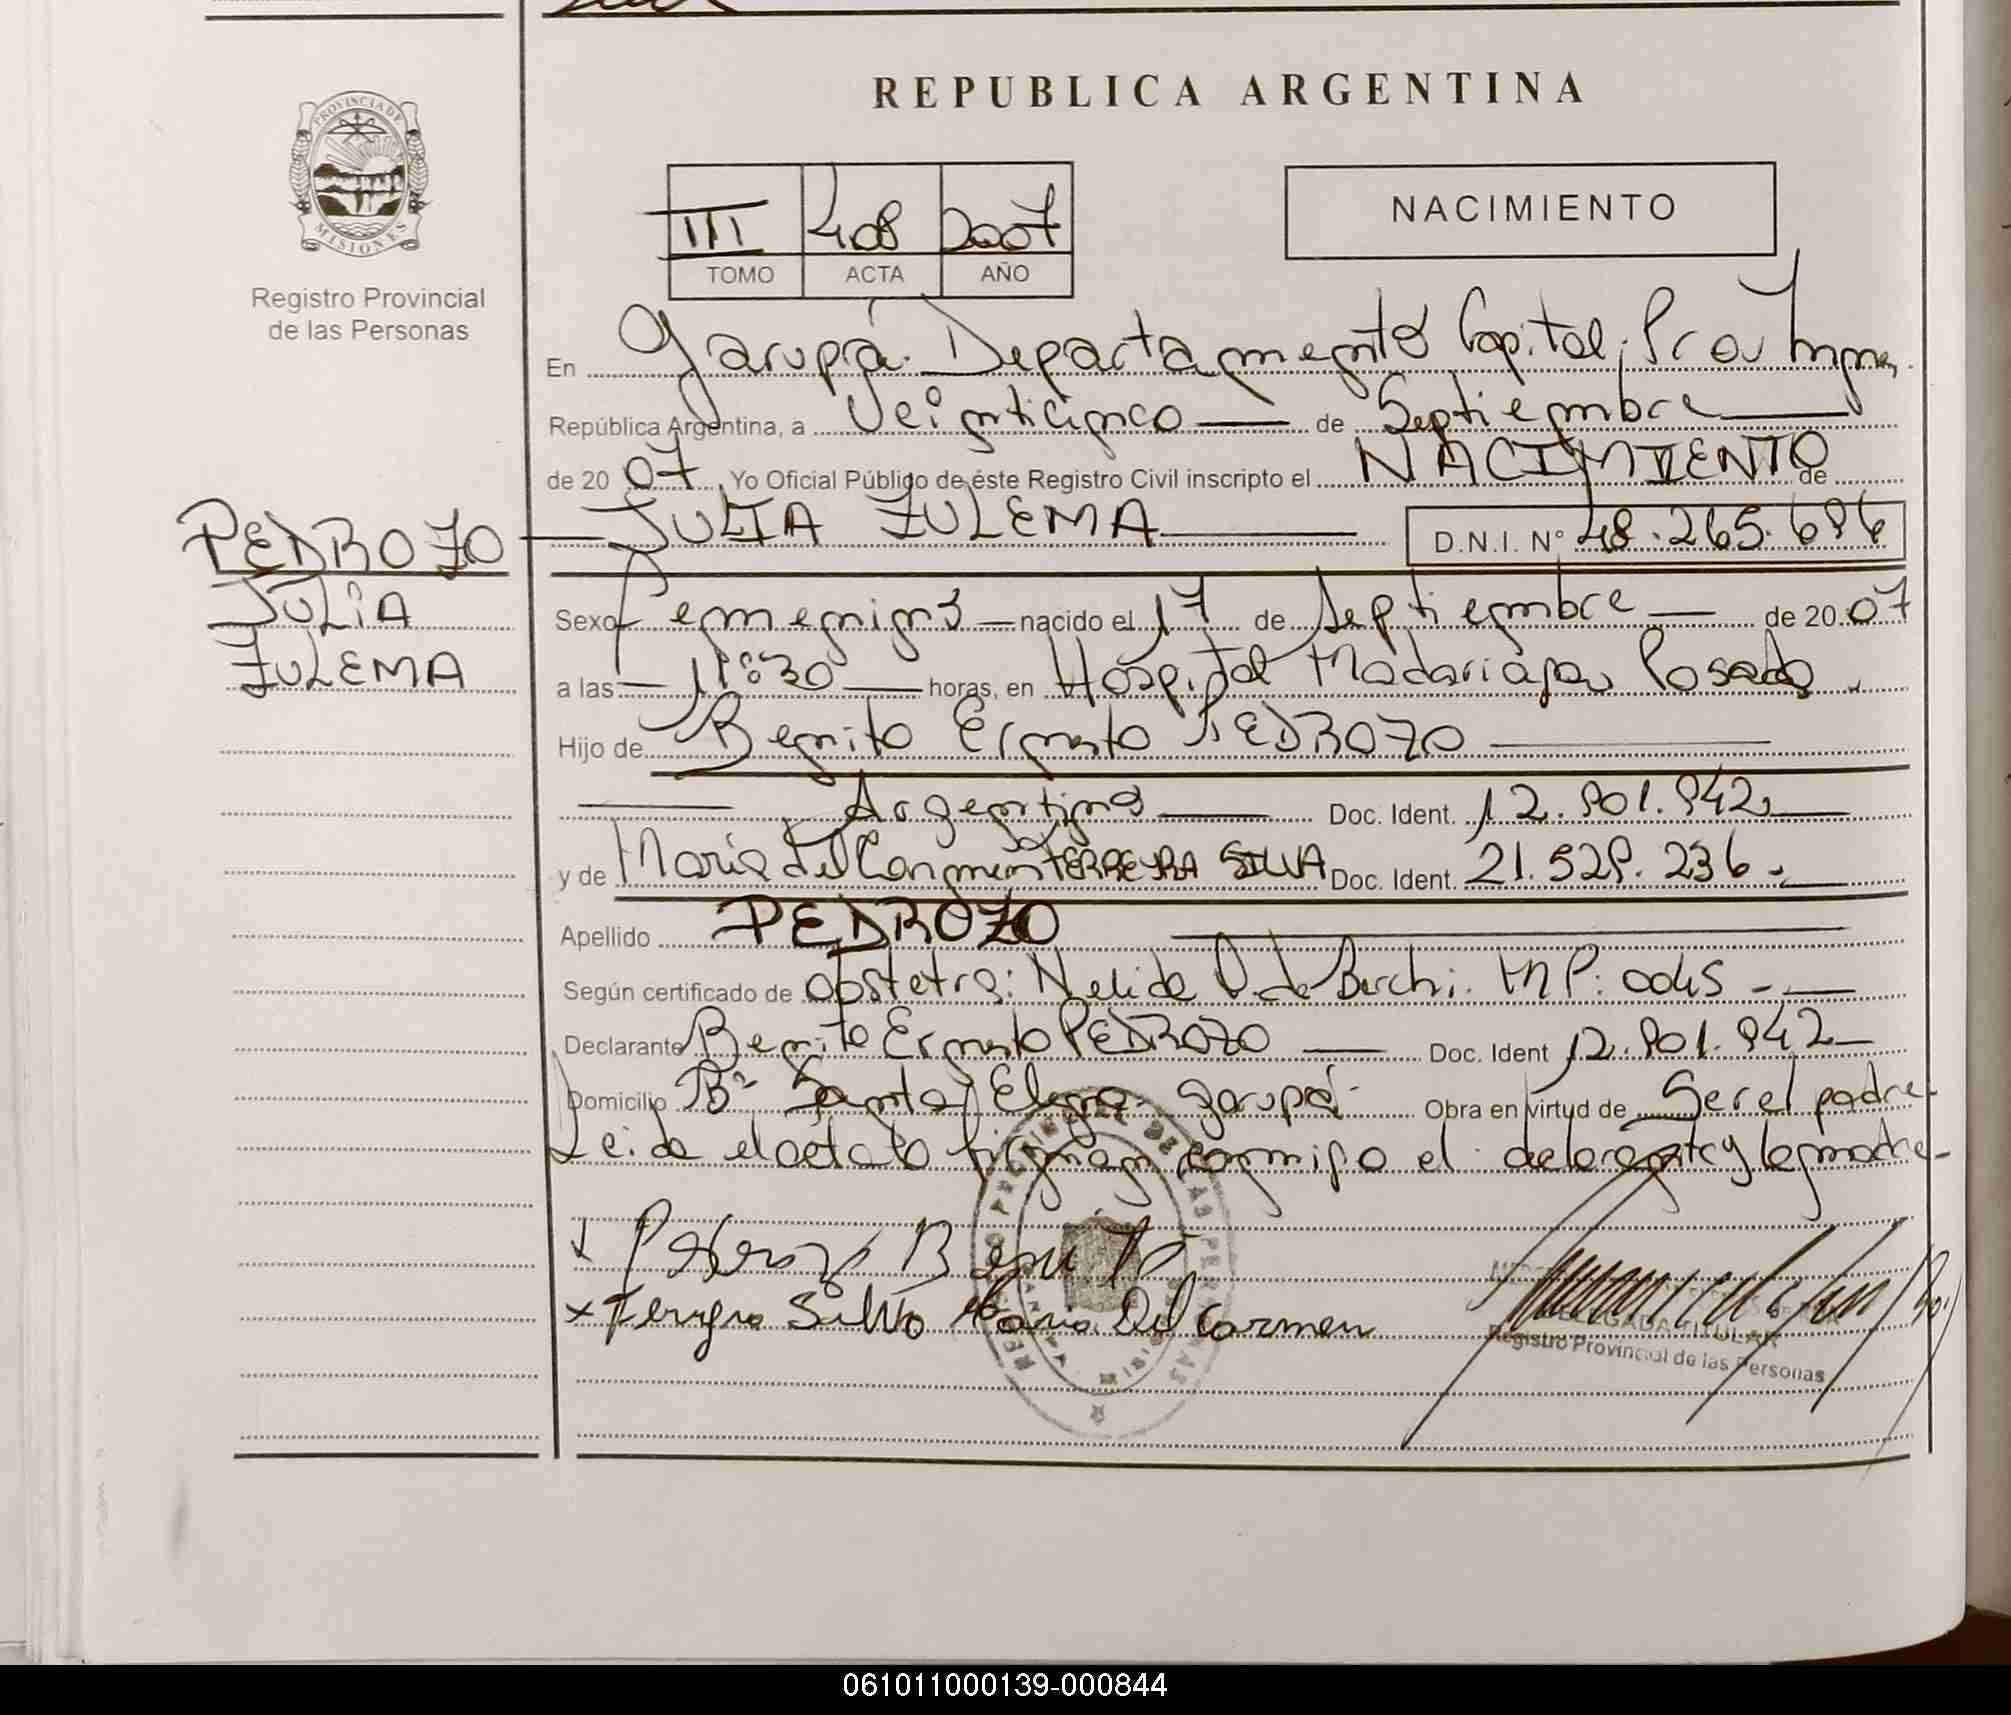 REPUBLICA ARGENTINA
PROVINCIA DE
MISIONES
Registro Provincial
de las Personas
III 408 2007
TOMO ACTA AÑO
NACIMIENTO
En Garupá Departamento Capital, Prov
República Argentina, a Veinticinco — de Septiembre —
de 20 07, Yo Oficial Público de éste Registro Civil inscripto el NACIMIENTO de
PEDROZO — JULIA ZULEMA — D.N.I. Nº 48.265.686
JULIA
ZULEMA
Sexo Femenino — nacido el 17 de Septiembre — de 20 07
a las — 11:30 — horas, en Hospital Madariaga Posadas
Hijo de Benito Ernesto PEDROZO —
— Argentino — Doc. Ident. 12.901.942 —
y de María del Carmen FERREYRA SILVA Doc. Ident. 21.529.236.—
Apellido PEDROZO —
Según certificado de Obstetra: Nelida D. de Burchi. MP: 0045 -.—
Declarante Benito Ernesto PEDROZO — Doc. Ident 12.901.942—
Domicilio Bº Santa Elena Garupá. Obra en virtud de Ser el padre-
Leida el acta lo firman conmigo el declarante y la madre-
x Pedrozo Benito
x Ferreyra Silva Maria Del Carmen
DELEGADA TITULAR
Registro Provincial de las Personas
061011000139-000844